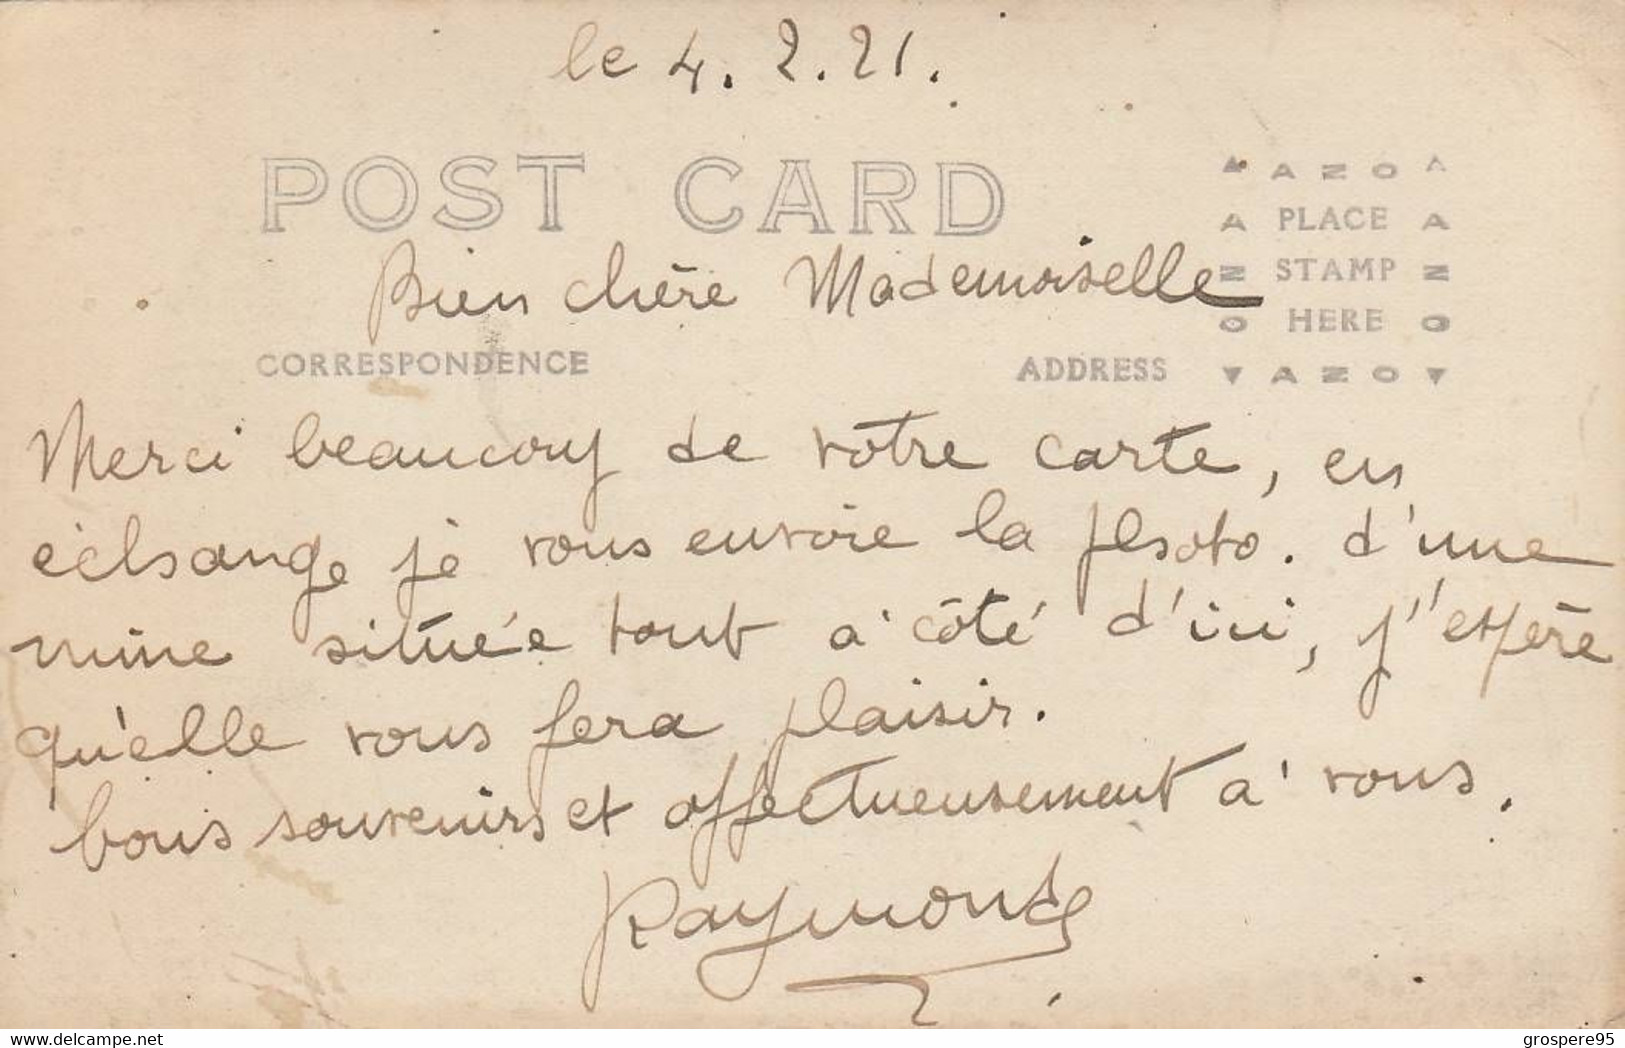 le 4.2.21.
POST CARD
AZO
PLACE
STAMP
HERE
AZO
Bien chère Mademoiselle
CORRESPONDENCE
ADDRESS
Merci beaucoup de votre carte, en
échange je vous envoie la photo. d'une
mine située tout à côté d'ici, j'espère
qu'elle vous fera plaisir.
bons souvenirs et affectueusement à vous.
Raymonde
www.delcampe.net
grospere95